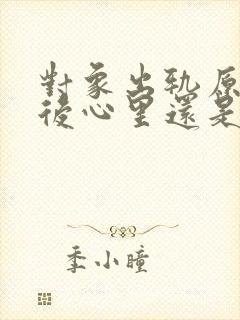 對象出軌原
後心里還是
季小瞳